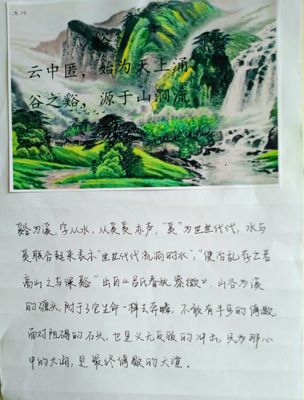 云中匿,始为天上涌
谷之谿,源于山涧流
谿为溪,字从水,从奚奚亦声,"奚"为世世代代,水与
奚联合起来表示"世世代代流向的水";"使治乱存亡若
高山之与深谿"出自《吕氏春秋察微》,山谷为溪
的源头,附于了它生命一样去奔腾,不敢有半分的傅敷
面对阻碍的石头,也是义无反顾的冲击,只为那心
中的大湖,是最终